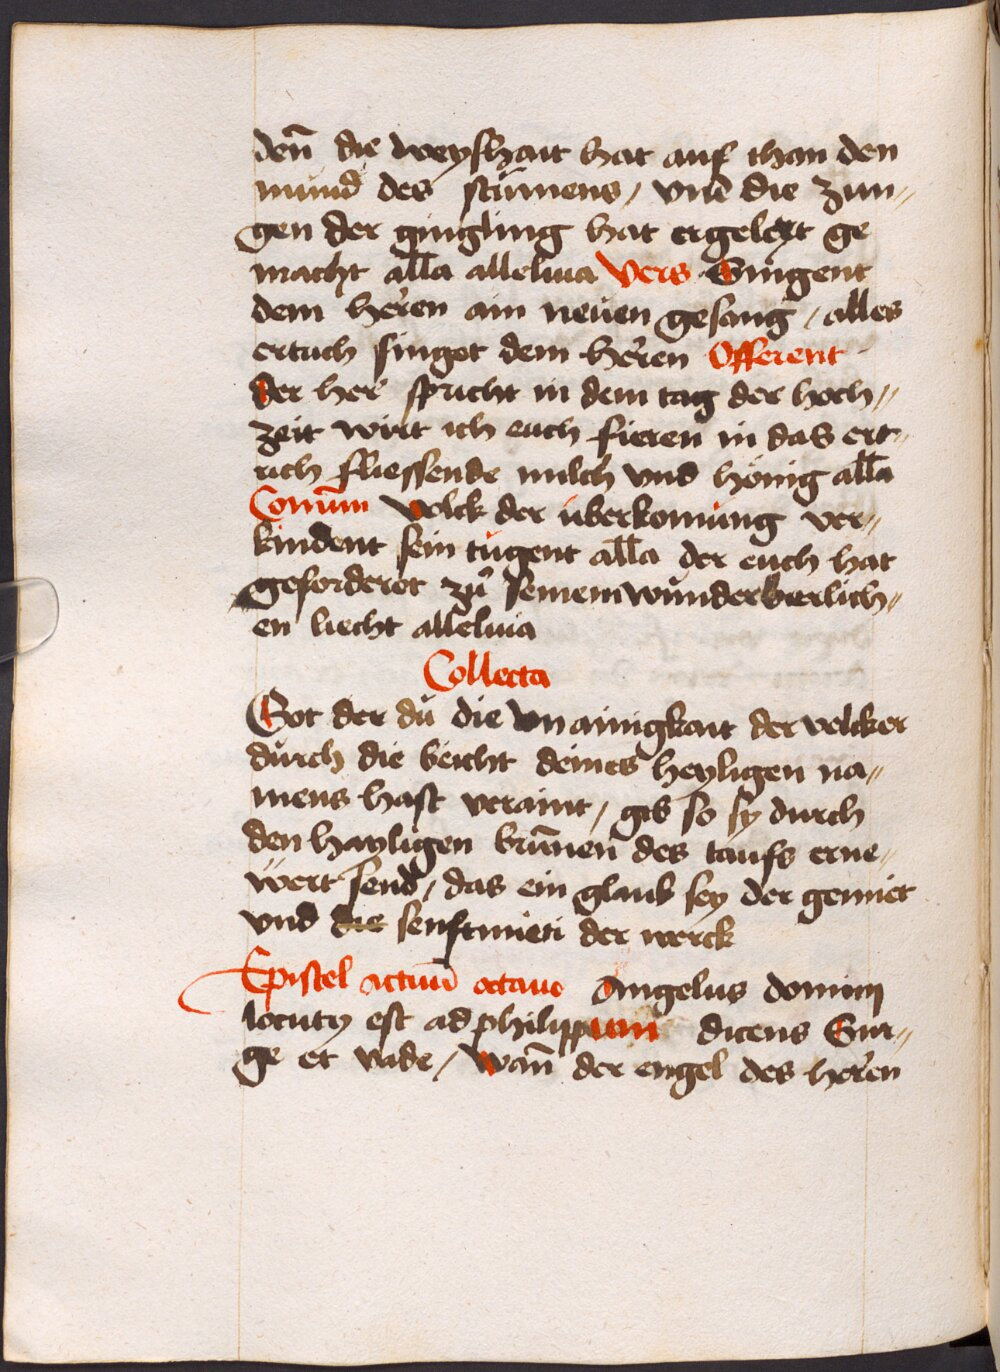 den̄ die weyshait hat auf than den
mund des stūmens / vnd die zun„
gen der gingling hat ergeleyt ge
macht all̄a alleluia Vers Singent
dem heren ain neüen gesang / alles
ertrich singet dem heren Offerent
der her spricht in dem tag der hoch„
zeit wirt ich euch fieren in das ert„
rich fliessende milch vnd hönig all̄a
Comūm Volck der überkomüng ver„
kindent sein tugent all̄a der euch hat
geforderet zů seinem wunderberlich„
en liecht alleluia
Collecta
Got der dü die vnainigkait der velcker
dürch die beicht deines heyligen na„
mens hast veraint / gib so sy durch
den hayligen brūnen des taufs erne„
wert send / das ein glaub sey der gemiet
vnd die senftmieti der werck
Epistel actuū octauo Angelus domini
locuty est ad philippum dicens Sur„
ge et vade / Wan̄ der engel des heren